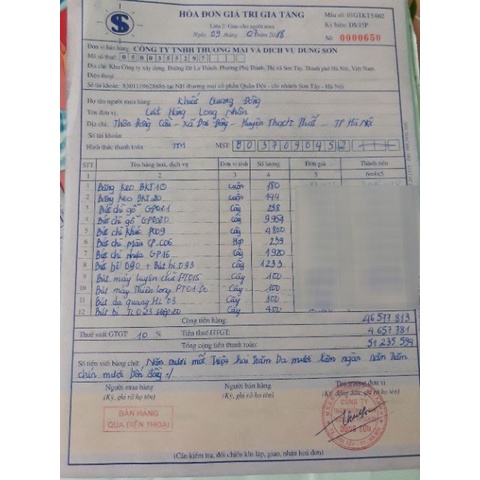 HÓA ĐƠN GIÁ TRỊ GIA TĂNG
Mẫu số: 01GTKT3/002
Liên 2: Giao cho người mua
Ký hiệu: DS/15P
Ngày 09 tháng 07 năm 2018
Số: 0000650
Đơn vị bán hàng: CÔNG TY TNHH THƯƠNG MẠI VÀ DỊCH VỤ DUNG SƠN
Mã số thuế:
Địa chỉ: Khu Công ty xây dựng, Đường Đê La Thành, Phường Phú Thịnh, Thị xã Sơn Tây, Thành phố Hà Nội, Việt Nam.
Điện thoại:
Số tài khoản: tại NH thương mại cổ phần Quân Đội - chi nhánh Sơn Tây - Hà Nội
Họ tên người mua hàng: Khuất Quang Đông
Tên đơn vị: Hàng Long Nhiên
Địa chỉ: Thôn Đồng Cầu - Xã Đại Đồng - Huyện Thạch Thất - TP Hà Nội
Số tài khoản
Hình thức thanh toán TM MST:
STT Tên hàng hoá, dịch vụ Đơn vị tính Số lượng Đơn giá Thành tiền
1 2 3 4 5 6=4x5
1 Băng keo BKT 10 cuộn 180
2 Băng keo BKT 20 cuộn 144
3 Bút chì gỗ GP011 Cây 298
4 Bút chì gỗ Cây
5 Bút chì khúc P009 Cây 4800
6 Bút chì màu CP.C06 Hộp 239
7 Bút chì nhựa GP16 Cây 1920
8 Bút bi 090 + Bút bi 093 Cây 1233
9 Bút máy luyện chữ FT015 Cây 100
10 Bút máy Thiên Long Cây 100
11 Bút dạ quang HL 03 Cây 300
12 Bút bi TL 023 Hộp 20 Cây 400
Cộng tiền hàng: 46 577 813
Thuế suất GTGT: 10 % Tiền thuế GTGT: 4 657 781
Tổng cộng tiền thanh toán: 51 235 594
Số tiền viết bằng chữ: Năm mươi mốt triệu hai trăm ba mươi lăm ngàn năm trăm
chín mươi bốn đồng ./
Người mua hàng
Người bán hàng
Thủ trưởng đơn vị
(Ký, ghi rõ họ tên)
(Ký, ghi rõ họ tên)
(Ký, đóng dấu, ghi rõ họ tên)
BÁN HÀNG
QUA ĐIỆN THOẠI
CÔNG TY
DUNG SƠN
(Cần kiểm tra, đối chiếu khi lập, giao, nhận hoá đơn)